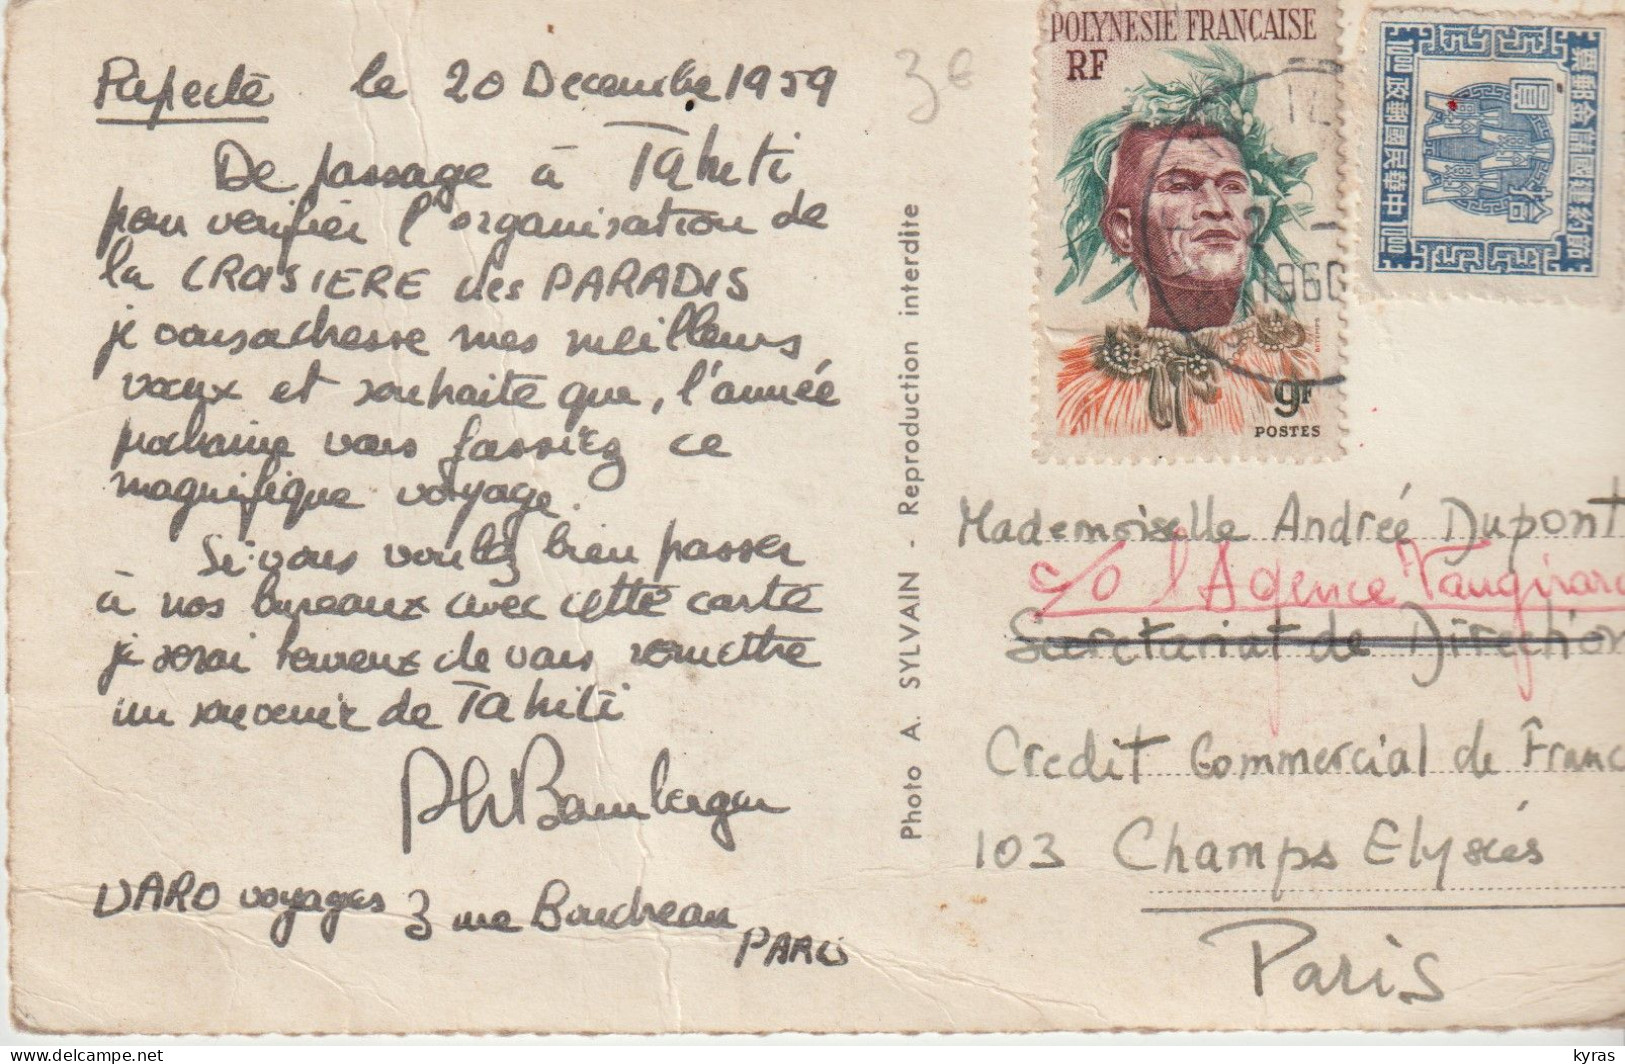 Papeete le 20 Decembre 1959
De passage à Tahiti
pour verifier l'organisation de
la CROISIERE des PARADIS
je vous adresse mes meilleurs
voeux et souhaite que, l'année
prochaine vous fassiez ce
magnifique voyage.
Si vous voulez bien passer
à nos bureaux avec cette carte
je serai heureux de vous remettre
un souvenir de Tahiti
Ph Bamberger
VARO voyages 3 rue Boudreau
PARIS
3€
Photo A. SYLVAIN - Reproduction interdite
POLYNESIE FRANÇAISE
RF
1960
9F
POSTES
節約建國儲金郵票
中華民國郵政
拾圓
1.00
1.00
Mademoiselle Andrée Dupont
c/o l'Agence Vaugirard
Secretariat de Direction
Credit Commercial de Franc
103 Champs Elysées
Paris
delcampe.net
kyras